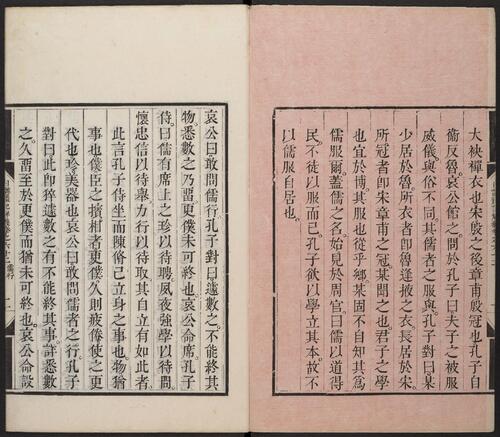 大袂襌衣也宋殷之後章甫殷冠也孔子自
衞反魯哀公館之問於孔子曰夫子之被服
威儀與俗不同其儒者之服與孔子對曰某
少居於魯所衣者卽魯逢掖之衣長居於宋
所冠者卽宋章甫之冠某聞之也君子之學
也宜於博其服也從乎鄉某固不自知其爲
儒服爾蓋儒之名始見於周官曰儒以道得
民不徒以服而已孔子欲以學立其本故不
以儒服自居也。
哀公曰敢問儒行孔子對曰遽數之不能終其
物悉數之乃畱更僕未可終也哀公命席孔子
侍曰儒有席上之珍以待聘夙夜強學以待問
懷忠信以待舉力行以待取其自立有如此者
此言孔子侍坐而陳脩己立身之事也物猶
事也僕臣之擯相者更僕久則疲倦使之更
代也珍美器也哀公曰敢問儒者之行孔子
對曰此卽猝遽數之有不能終其事詳悉數
之久畱至於更僕而猶未可終也哀公命設